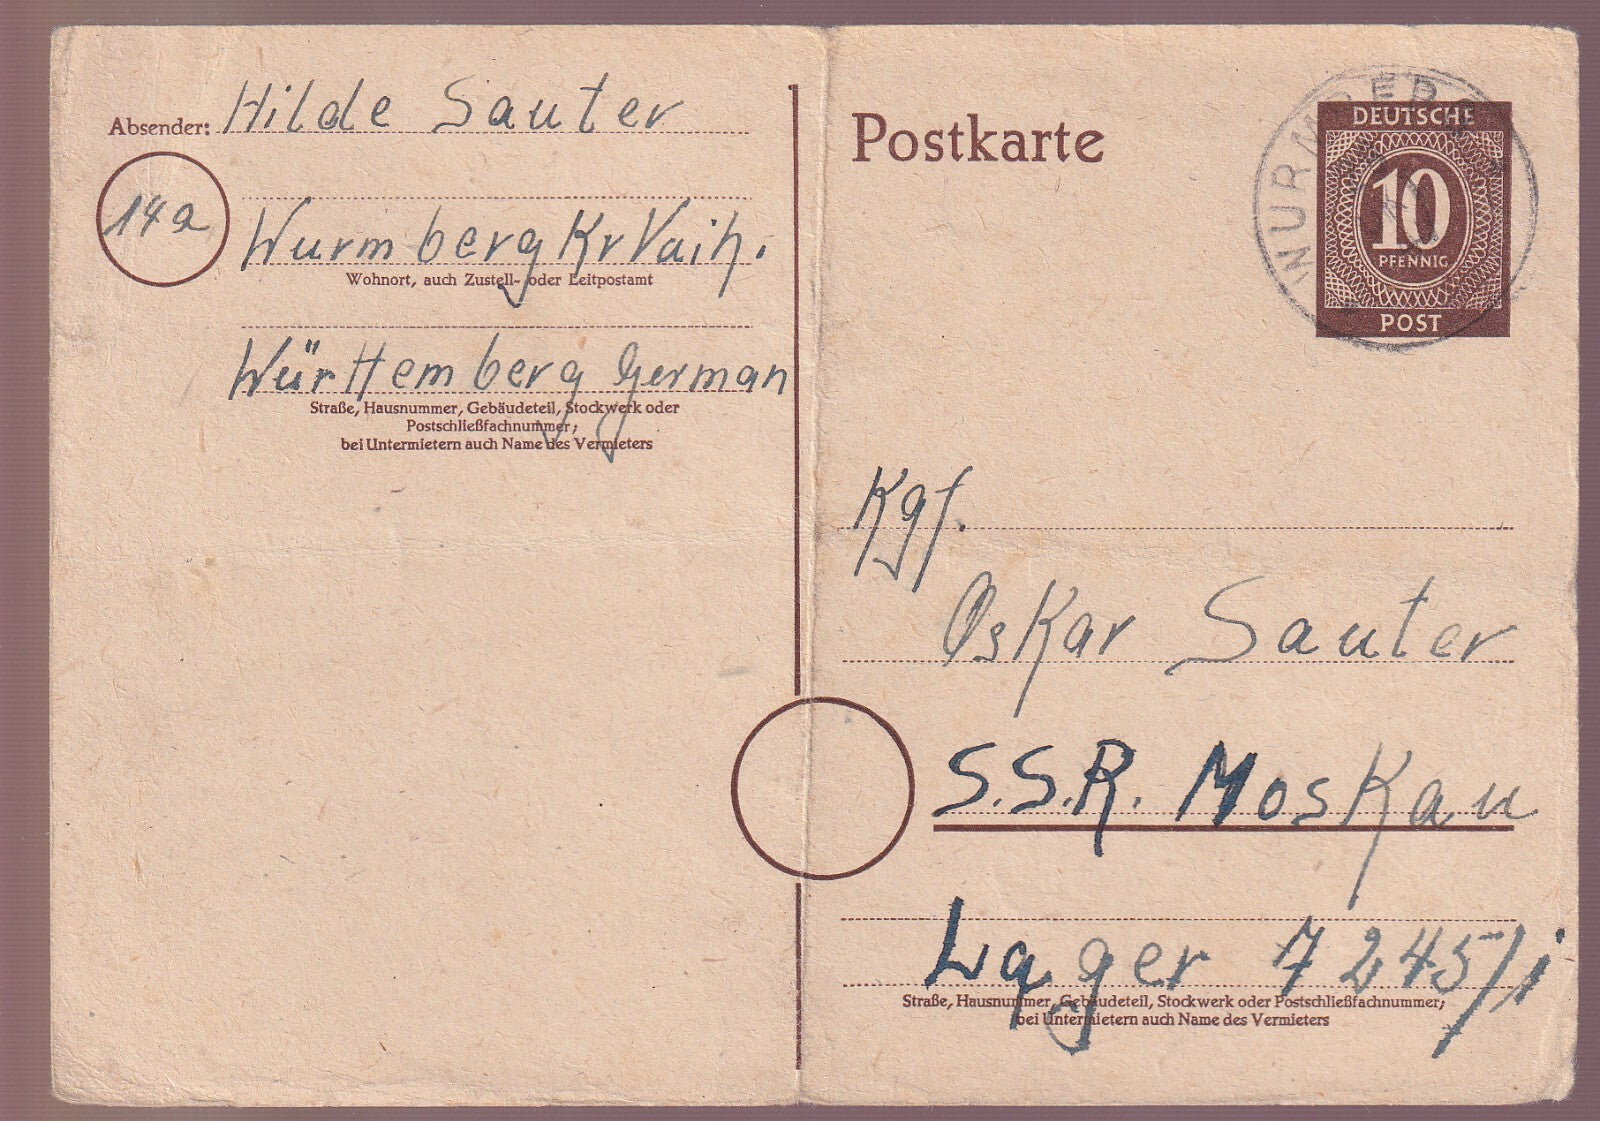 Absender: Hilde Sauter
14a
Wurmberg Kr Vaih.
Wohnort, auch Zustell- oder Leitpostamt
Württemberg German
Straße, Hausnummer, Gebäudeteil, Stockwerk oder
Postschließfachnummer;
bei Untermietern auch Name des Vermieters
Postkarte
WURMBERG
DEUTSCHE
10
PFENNIG
POST
Kgf.
Oskar Sauter
S.S.R. Moskau
Lager 7245/1
Straße, Hausnummer, Gebäudeteil, Stockwerk oder Postschließfachnummer;
bei Untermietern auch Name des Vermieters